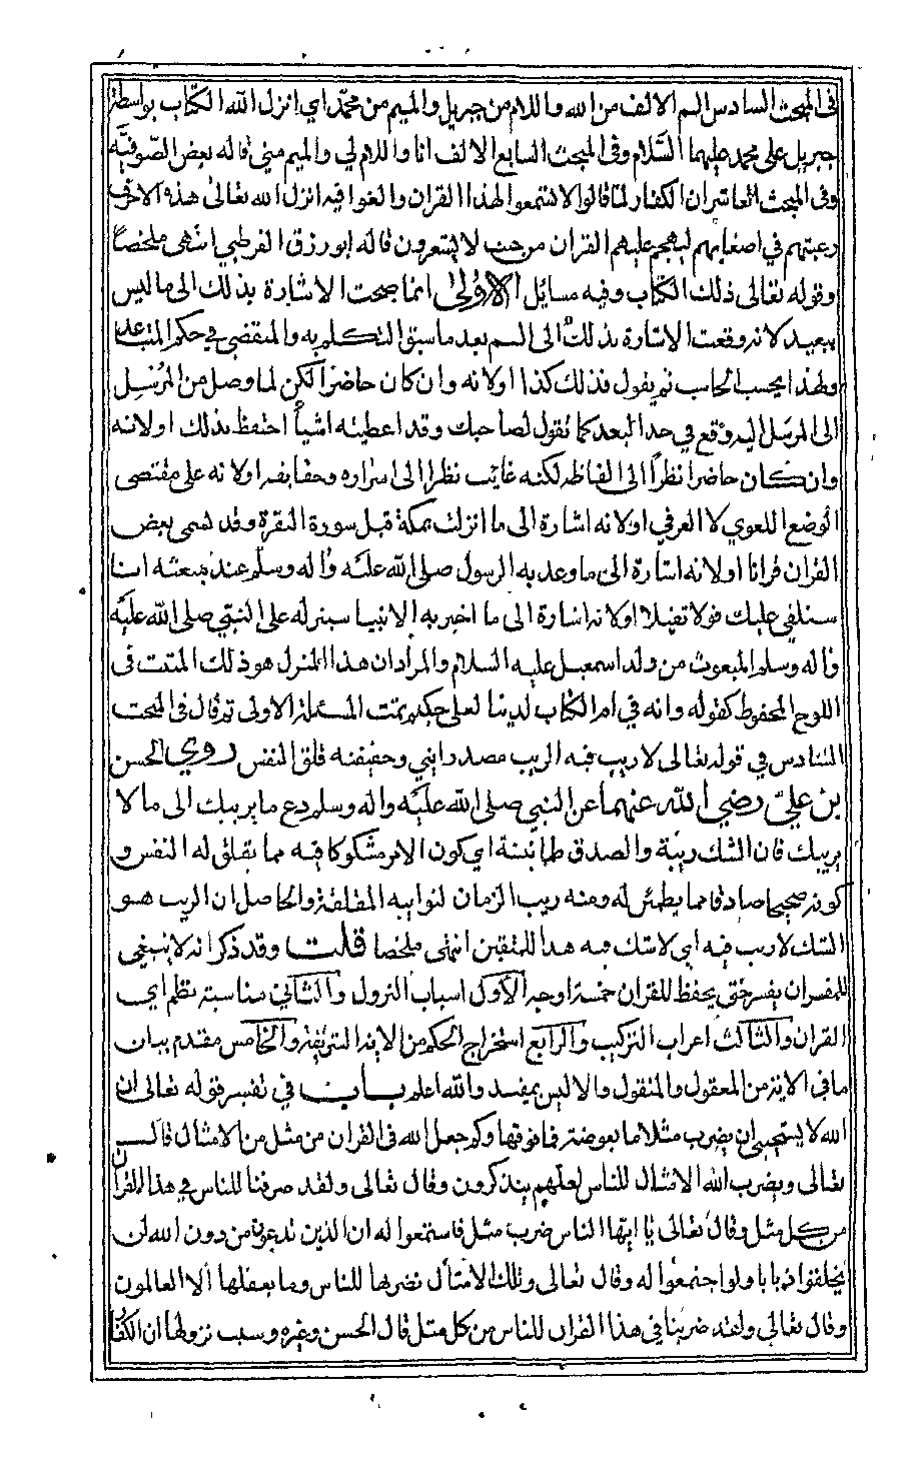 في المبحث السادس الم الالف من الله واللام من جبريل والميم من محمد اي انزل الله الكتاب بواسطة
جبريل على محمد عليهما السلام وفي المبحث السابع الالف انا واللام لي والميم مني قاله بعض الصوفية
وفي المبحث العاشر ان الكفار لما قالوا لا تسمعوا لهذا القران والغوا فيه انزل الله تعالى هذه الاحرف
رغبتهم في اصغايهم ليهجم عليهم القران من حيث لا يشعرون قاله ابو رزق القرطبي انتهى ملخصا
وقوله تعالى ذلك الكتاب وفيه مسائل الاولى انما صحت الاشارة بذلك الى ما ليس
ببعيد لانه وقعت الاشارة بذلك الى الم بعد ما سبق التكلم به والمنقضي في حكم المتباعد
ولهذا يحسب الحاسب ثم يقول فذلك كذا اولانه وان كان حاضرا لكن لما وصل من المرسل
الى المرسل اليه وقع في حد البعد كما تقول لصاحبك وقد اعطيته اشيأ احتفظ بذلك اولانه
وان كان حاضرا نظرا الى الفاظه لكنه غايب نظرا الى اسراره وحقايقه اولانه على مقتضى
الوضع اللغوي لا العرفي اولانه اشارة الى ما انزلت بمكة قبل سورة البقرة وقد سمي بعض
القران قرانا اولانه اشارة الى ما وعد به الرسول صلى الله عليه واله وسلم عند مبعثه انا
سنلقي عليك قولا ثقيلا اولانه اشارة الى ما اخبر به الانبيا سينزله على النبي صلى الله عليه
واله وسلم المبعوث من ولد اسمعيل عليه السلام والمراد ان هذا المنزل هو ذلك المثبت في
اللوح المحفوظ كقوله وانه في ام الكتاب لدينا لعلي حكيم تمت المسئلة الاولى ثم قال في المبحث
السادس في قوله تعالى لا ريب فيه الريب مصدر رابني وحقيقته قلق النفس روي الحسن
بن علي رضي الله عنهما عن النبي صلى الله عليه واله وسلم دع ما يريبك الى ما لا
يريبك فان الشك ريبة والصدق طمانينة اي كون الامر مشكوكا فيه مما يقلق له النفس و
كونه صحيحا صادقا مما يطمئن له ومنه ريب الزمان لنوايبه المقلقة والحاصل ان الريب هو
الشك لا ريب فيه اي لا شك فيه هدا للمتقين انتهى ملخصا قلت وقد ذكر انه لا ينبغي
للمفسر ان يفسر حتى يحفظ للقران خمسة اوجه الاول اسباب النزول والثاني مناسبة نظم اي
القران والثالث اعراب التركيب والرابع استخراج الحكم من الاية الشريفة والخامس مقدم بيان
ما في الاية من المعقول والمنقول والا ليس بمفيد والله اعلم باب في تفسير قوله تعالى ان
الله لا يستحيي ان يضرب مثلا ما بعوضة فما فوقها وكم جعل الله في القران من مثل من الامثال قال
تعالى ويضرب الله الامثال للناس لعلهم يتذكرون وقال تعالى ولقد صرفنا للناس في هذا القران
من كل مثل وقال تعالى يا ايها الناس ضرب مثل فاستمعوا له ان الذين تدعون من دون الله لن
يخلقوا ذبابا ولو اجتمعوا له وقال تعالى وتلك الامثال نضربها للناس وما يعقلها الا العالمون
وقال تعالى ولقد ضربنا في هذا القران للناس من كل مثل قال الحسن وغيره وسبب نزولها ان الكفا